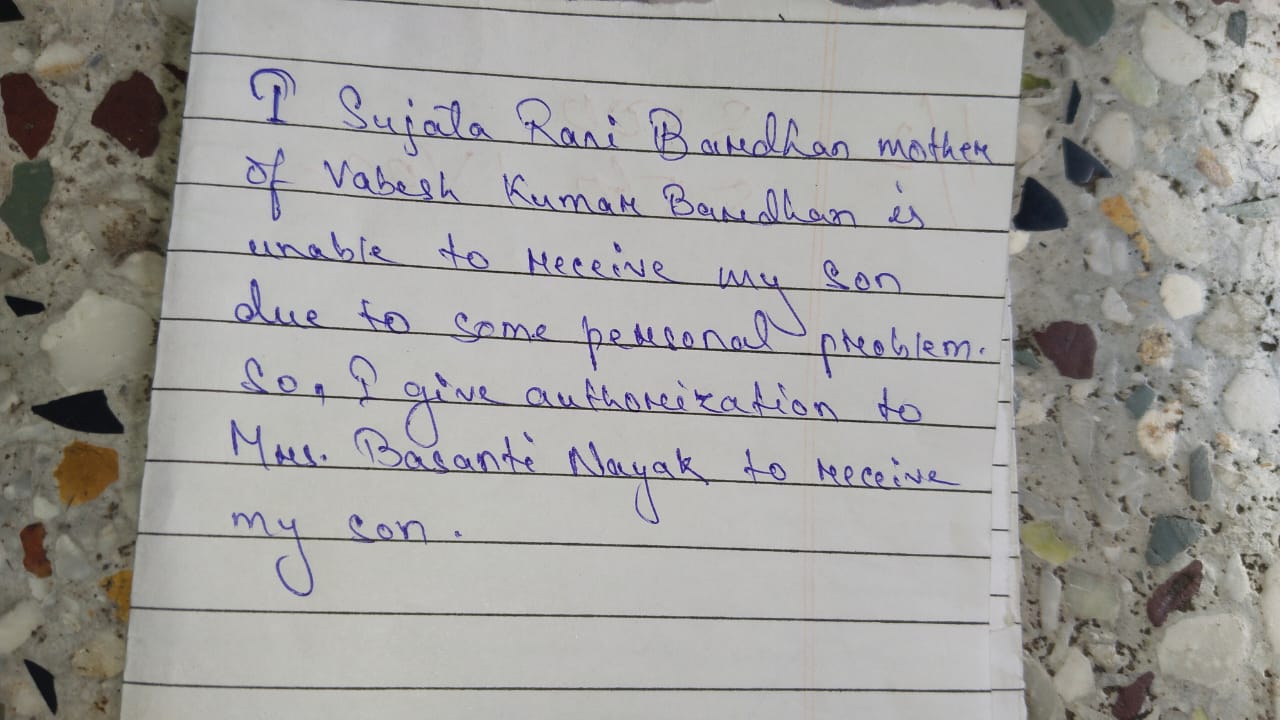 I Sujata Rani Bardhan mother
of Vabesh Kumar Bardhan is
unable to receive my son
due to some personal problem.
So, I give authorization to
Mrs. Basanti Nayak to receive
my son.